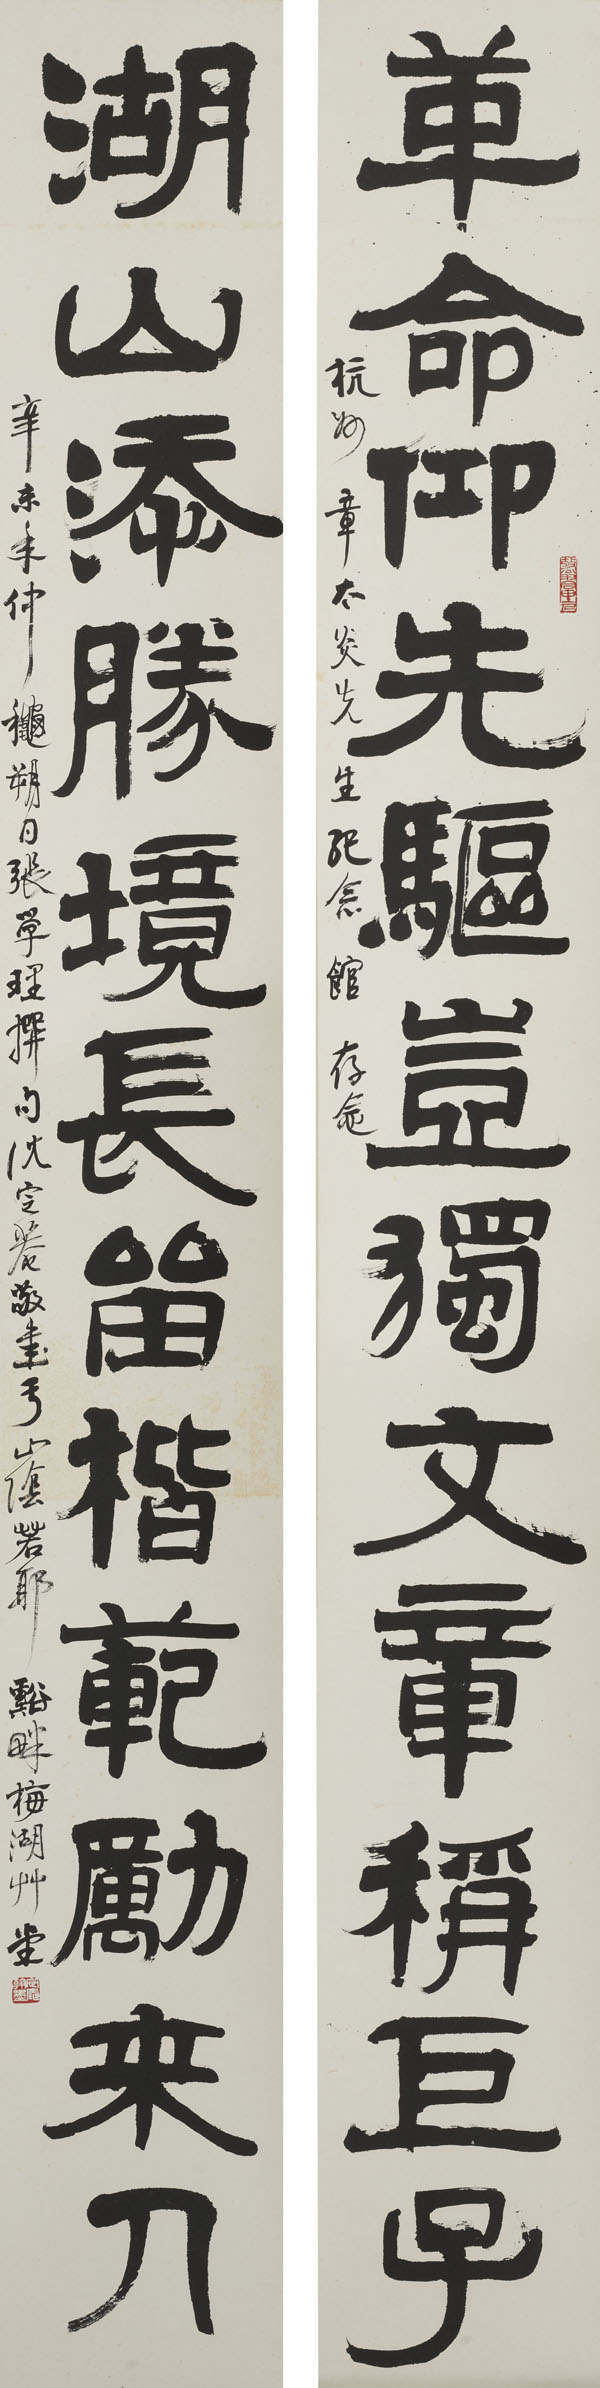 革命仰先驅豈獨文章稱巨子
杭州章太炎先生紀念館存念
湖山添勝境長留楷範勵来人
辛未年仲龝朔日張學理撰句沈定菴敬書于山陰若耶谿畔梅湖艸堂